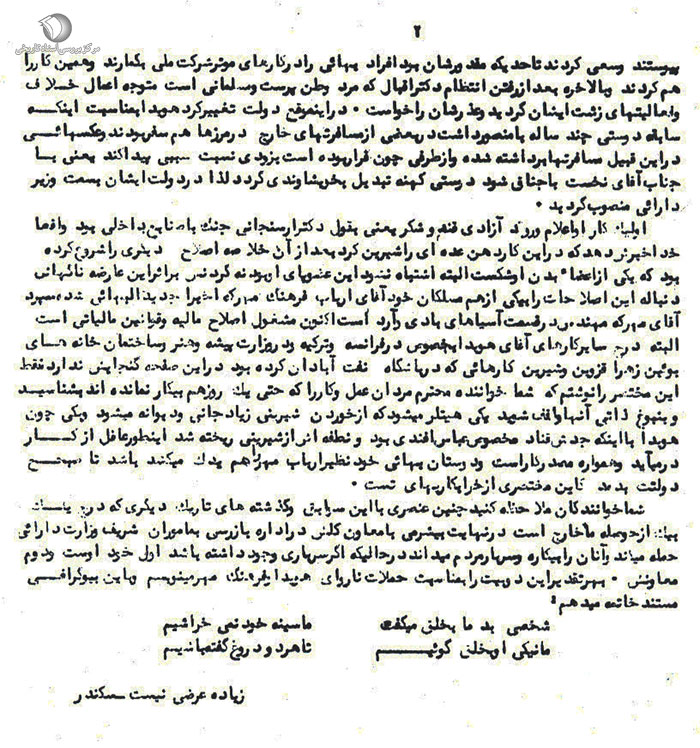 مرکز بررسی اسناد تاریخی
۲
پیوستند وسعی کردند تاحدیکه مقدورشان بود افراد بهائی رادرکارهای موثرشرکت ملی بگمارند وهمین کاررا
هم کردند وبالاخره بعدازرفتن انتظام دکتراقبال که مرد وطن پرست ومسلمانی است متوجه اعمال خلاف
وفعالیتهای زشت ایشان گردید وعذرشان راخواست ۰ دراینموقع دولت تغییرکرد هویدا بمناسبت اینکه
سابقه دوستی چند ساله بامنصورداشت دربعضی ازمسافرتهای خارج درمرزها هم سفربودند وعکسهائی
دراین قبیل مسافرتهابرداشته شده وازطرفی چون قراربوده است بزودی نسبت سببی پیداکند یعنی با
جناب آقای نخست باجناق شود دوستی کهنه تبدیل بخویشاوندی گردد لذا دردولت ایشان بسمت وزیر
دارائی منصوب گردید ۰
اولین کار اواعلام ورود آزادی قندو شکر یعنی بقول دکترارسنجانی جنگ باصنایع داخلی بود واقعا
خداخیرش دهد که دراین کارد هن عده ای راشیرین کرد بعدازآن خلاصه اصلاح دیگری راشروع کرده
بود که یکی ازاعضاء بدن اوشکست البته اشتباه نشود این عضوپای اوبود نه گردنش براثراین عارضه ناگهانی
دنباله این اصلاحات رابیکی ازهم مسلکان خود آقای ارباب فرهنگ مهرکه اخیرا جدیدالبهائی شده سپرد
آقای مهرکه مهندس درقسمت آسیاهای بادی وآرد است اکنون مشغول اصلاح مالیه وقوانین مالیاتی است
البته درج سایرکارهای آقای هویدا بخصوص درفرانسه وترکیه ودروزارت پیشه وهنر وساختمان خانه های
بوئین زهرا قزوین وشیرین کارهائی که درپالایشگاه نفت آبادان کرده بود دراین صفحه گنجایش ندارد فقط
این مختصر رانوشتم که شما خواننده محترم مردان عمل وکاررا که حتی یک روزهم بیکار نمانده اند بشناسید
وبنبوغ ذاتی آنها واقف شوید یکی هیتلر میشود که ازخوردن شیرینی زیاد جانی ودیوانه میشود ویکی چون
هویدا بااینکه جدش قناد مخصوص عباس افندی بود و نطفه اش ازشیرینی ریخته شد اینطورعاقل از کار
درمیآید وهمواره مصدرکاراست ودوستان بهائی خود نظیرارباب مهرراهم یدک میکند باشد تا صبح
دولتت بدمد کاین مختصری ازخرابکاریهای تست ۰
شماخوانندگان ملاحظه کنید چنین عنصری بااین سوابق وگذشته های تاریک دیگری که درج یکایک
بیک ازحوصله ماخارج است درنهایت بیشرمی بامعاون کلش دراداره بازرسی بماموران شریف وزارت دارائی
حمله میکند وآنان رابیکاره وسربارمردم میداند درحالیکه اگرسرباری وجود داشته باشد اول خود اوست ودوم
معاونش ۰ بهرتقدیر این دوبیت رابمناسبت حملات ناروای هویدا وفرهنگ مهرمینویسم وباین بیوگرافی
مستند خاتمه میدهم :
شخصی بد ما بخلق میگفت ماسینه خود نمی خراشیم
مانیکی اوبخلق گوئیم تاهردو دروغ گفته باشیم
زیاده عرضی نیست سکندر